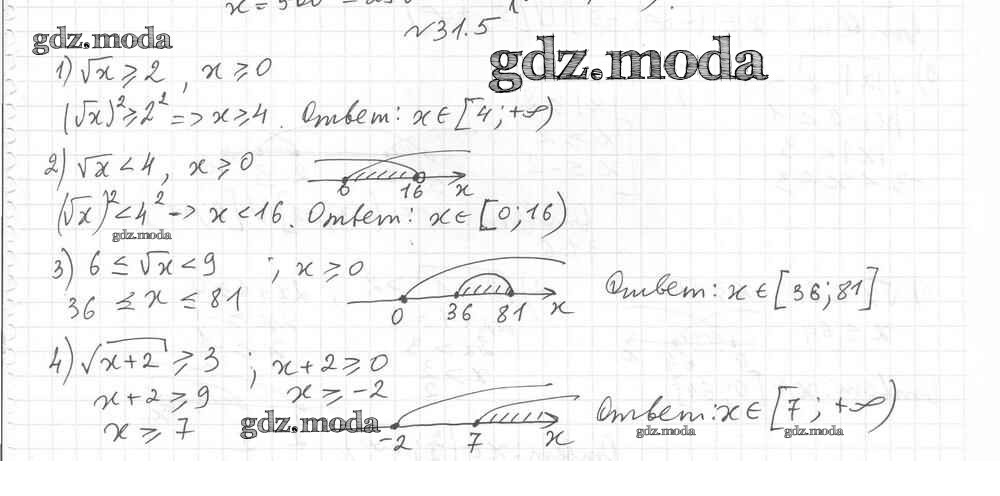 №31.5
gdz.moda
gdz.moda
1) √x ≥ 2, x ≥ 0
(√x)² ≥ 2² => x ≥ 4. Ответ: x ∈ [4; +∞)
2) √x < 4, x ≥ 0
0 16 x
(√x)² < 4² -> x < 16. Ответ: x ∈ [0; 16)
gdz.moda
3) 6 ≤ √x < 9 ; x ≥ 0
36 ≤ x ≤ 81
0 36 81 x
Ответ: x ∈ [36; 81]
4) √x+2 ≥ 3 ; x+2 ≥ 0
x+2 ≥ 9 x ≥ -2
x ≥ 7
gdz.moda
-2 7 x
Ответ: x ∈ [7; +∞)
gdz.moda gdz.moda